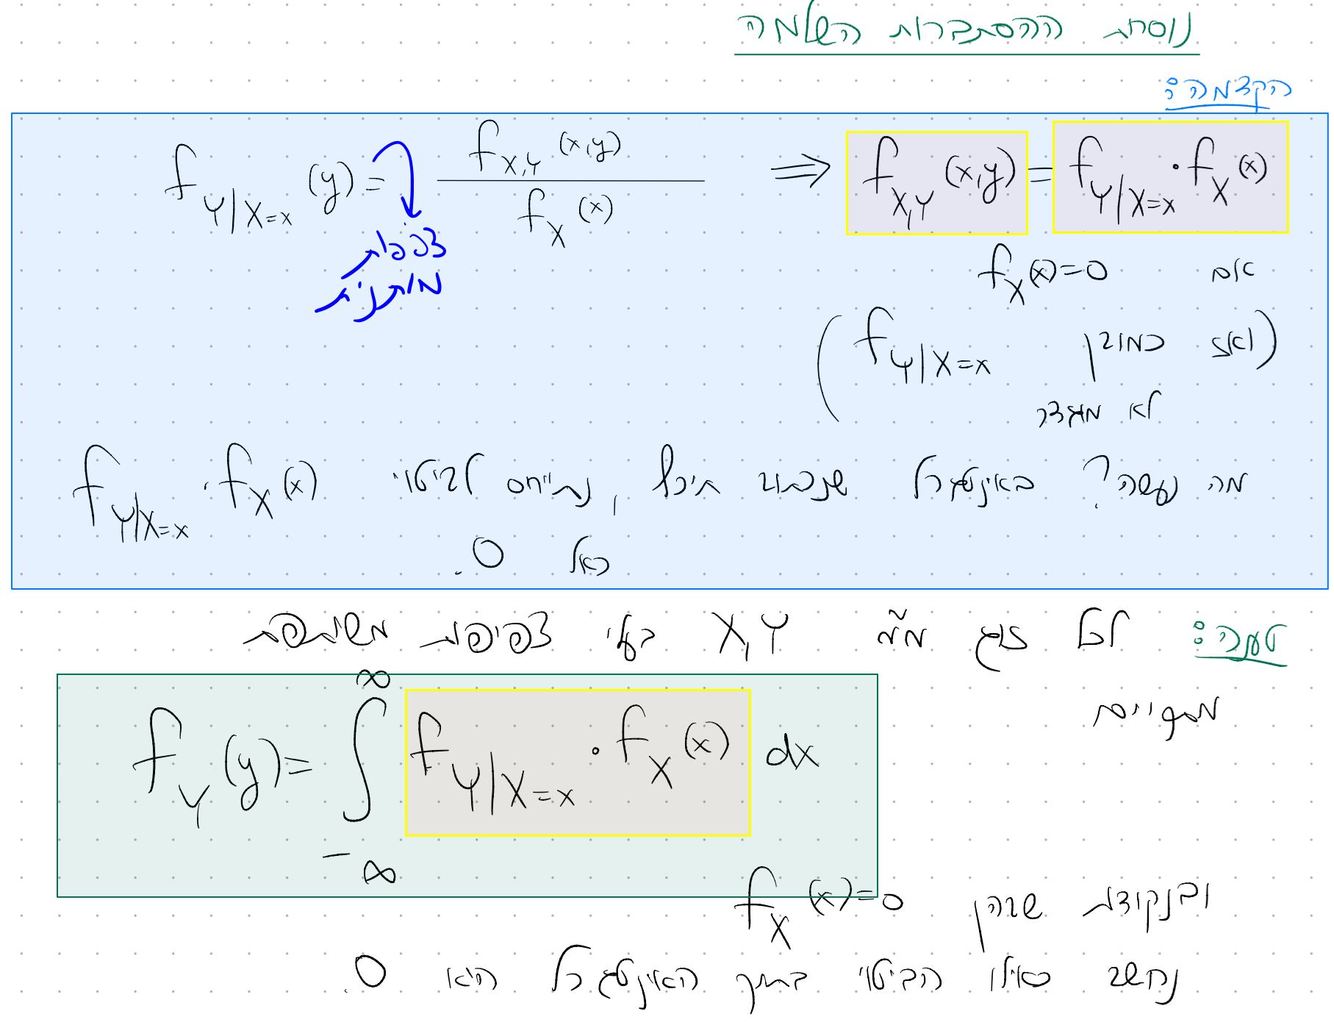 נוסחת ההסתברות השלמה
הקדמה:
f_{Y|X=x}(y) = \frac{f_{X,Y}(x,y)}{f_X(x)} ⟹ f_{X,Y}(x,y) = f_{Y|X=x} · f_X(x)
צפיפות
מותנית
אם f_X(x)=0
(ואז כמובן f_{Y|X=x}
לא מוגדר)
מה נעשה? באינטגרל שנכתוב תיכף, נתייחס לביטוי f_{Y|X=x} · f_X(x)
כאל 0.
טענה: לכל זוג מ"מ X,Y בעלי צפיפות משותפת
מתקיים
f_Y(y) = \int_{-∞}^{∞} f_{Y|X=x} · f_X(x) dx
ובנקודות שבהן f_X(x)=0
נחשב כאילו הביטוי בתוך האינטגרל הוא 0.